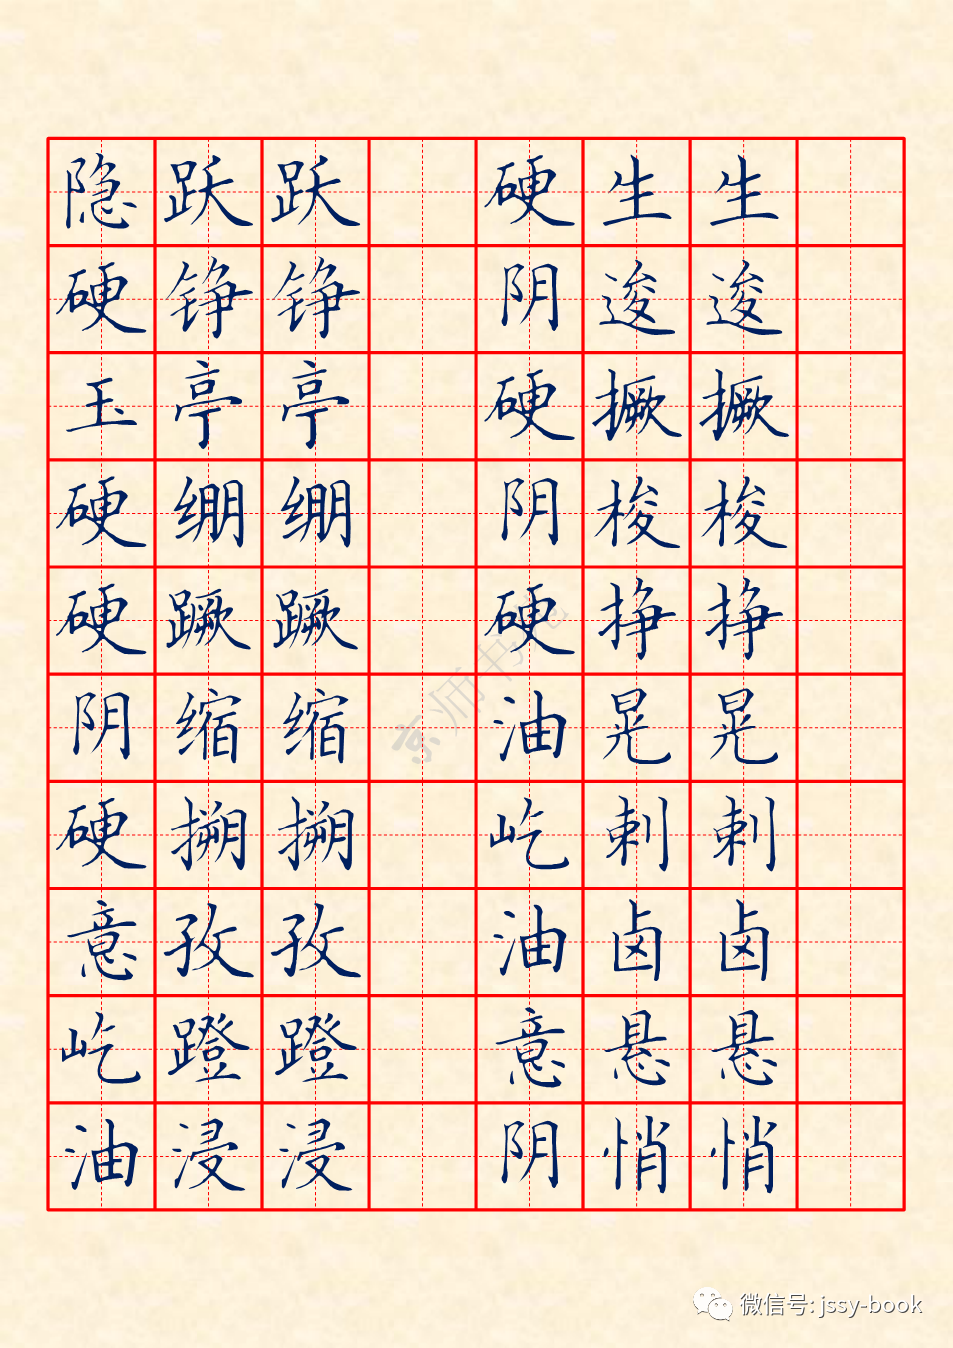 隐跃跃 硬生生
硬铮铮 阴逡逡
玉亭亭 硬撅撅
硬绷绷 阴梭梭
硬蹶蹶 硬挣挣
阴缩缩 油晃晃
硬搠搠 屹剌剌
意孜孜 油卤卤
屹蹬蹬 意悬悬
油浸浸 阴悄悄
京师书苑
微信号: jssy-book